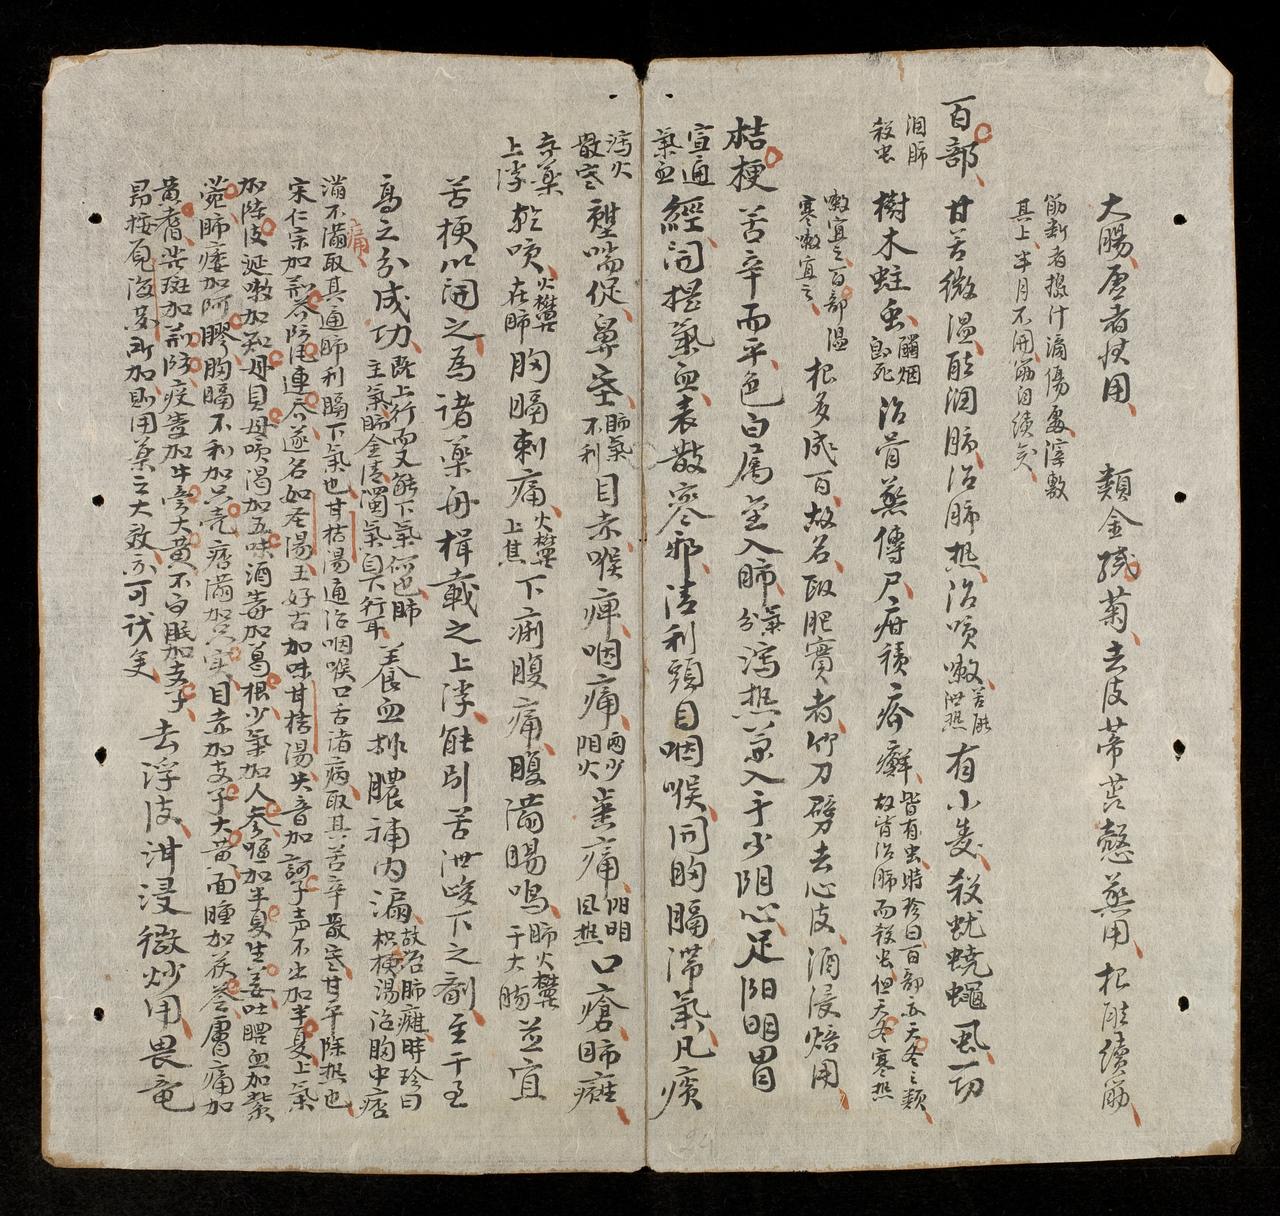 大腸虛者忮用　類金錢菊去皮蒂蕊殼蒸用根能續筋
筋斷者搥汁滴傷處滓敷
其上半月不開筋自續矣
百部甘苦微溫能潤肺治肺热治咳嗽苦能泄热有小毒殺蚘蟯蠅虱一切
潤肺
殺虫
樹木蛀虫觸烟即死治骨蒸傳尸疳積疥癬皆有虫時珍曰百部亦天冬之類
故皆治肺而殺虫但天冬寒热
嗽宜之百部温
寒嗽宜之
根多成百故名取肥實者竹刀劈去心皮酒浸焙用
桔梗苦辛而平色白属金入肺氣分瀉热兼入手少阴心足阳明胃
宣通
氣血
經開提氣血表散寒邪清利頭目咽喉開胸膈滯氣凡痰
瀉火
散寒
壅喘促鼻塞肺氣不利目赤喉痺咽痛兩少阴火齒痛阳明風热口瘡肺癰
舟藥
上浮
乾咳火鬱在肺胸膈刺痛火鬱上焦下痢腹痛腹滿腸鳴肺火鬱于大腸並宜
苦梗以開之為諸藥舟楫載之上浮能引苦泄峻下之劑至于至
高之分成功既上行而又能下氣何也肺
主氣肺金清濁氣自下行耳養血排膿補内漏故治肺癰時珍曰
枳梗湯治胸中痞
滿不痛取其通肺利膈下氣也甘桔湯通治咽喉口舌諸病取其苦辛散寒甘平除热也
宋仁宗加荆芥防風連翹遂名如圣湯王好古加味甘桔湯失音加訶子声不出加半夏上氣
加陳皮涎嗽加知母貝母咳渴加五味酒毒加葛根少氣加人參嘔加半夏生姜吐膿血加紫
菀肺痿加阿膠胸膈不利加只壳痞滿加只实目赤加支子大黃面腫加茯苓膚痛加
黃耆发斑加荆防疫毒加牛旁大黃不白眠加支子去浮皮泔浸微炒用畏竜
昂按觀海藏所加則用藥之大致亦可識矣